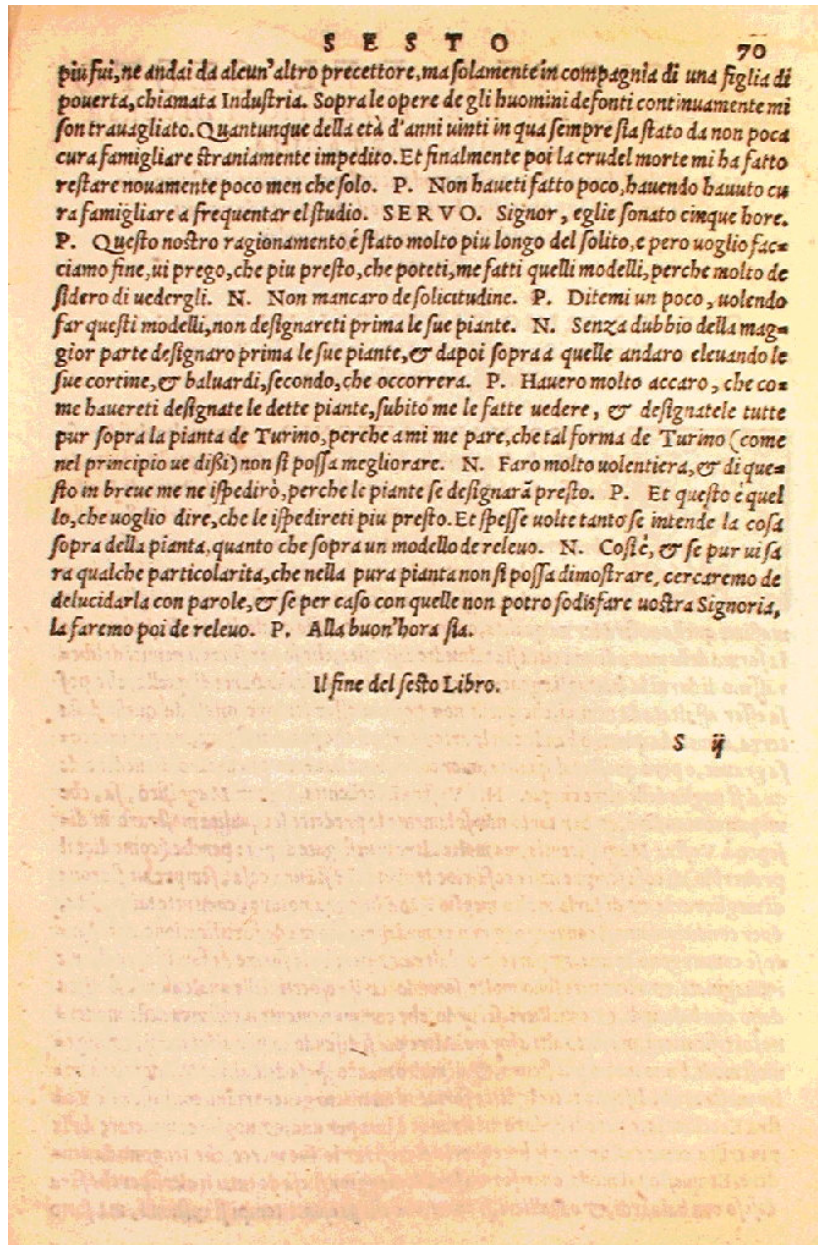 SESTO 70
piu fui, ne andai da alcun'altro precettore, ma solamente in compagnia di una figlia di
pouerta, chiamata Industria. Sopra le opere de gli huomini defonti continuamente mi
son trauagliato. Quantunque della età d'anni uinti in qua sempre sia stato da non poca
cura famigliare straniamente impedito. Et finalmente poi la crudel morte mi ha fatto
restare nouamente poco men che solo. P. Non haueti fatto poco, hauendo hauuto cu
ra famigliare a frequentar el studio. SERVO. Signor, eglie sonato cinque hore.
P. Questo nostro ragionamento é stato molto piu longo del solito, e pero uoglio fac=
ciamo fine, ui prego, che piu presto, che poteti, me fatti quelli modelli, perche molto de
sidero di uedergli. N. Non mancaro de solicitudine. P. Ditemi un poco, uolendo
far questi modelli, non designareti prima le sue piante. N. Senza dubbio della mag=
gior parte designaro prima le sue piante, & dapoi sopra a quelle andaro eleuando le
sue cortine, & baluardi, secondo, che occorrera. P. Hauero molto accaro, che co=
me hauereti designate le dette piante, subito me le fatte uedere, & designatele tutte
pur sopra la pianta de Turino, perche a mi me pare, che tal forma de Turino (come
nel principio ue dißi) non si possa megliorare. N. Faro molto uolentiera, & di que=
sto in breue me ne ispedirò, perche le piante se designarā presto. P. Et questo è quel
lo, che uoglio dire, che le ispedireti piu presto. Et spesse uolte tanto se intende la cosa
sopra della pianta, quanto che sopra un modello de releuo. N. Cosi é, & se pur ui sa
ra qualche particolarita, che nella pura pianta non si possa dimostrare, cercaremo de
delucidarla con parole, & se per caso con quelle non potro sodisfare uostra Signoria,
la faremo poi de releuo. P. Alla buon'hora sia.
Il fine del sesto Libro.
S ij